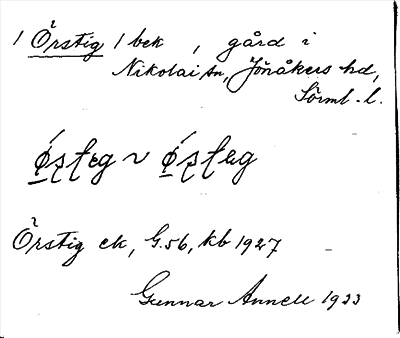 1 Örstig 1 bek , gård i
Nikolai sn, Jönåkers hd,
Sörml. l.
ǿʂʈeg ~ ǿʂʈəg
Örstig ek, G.56, kb 1927
Gunnar Annell 1933